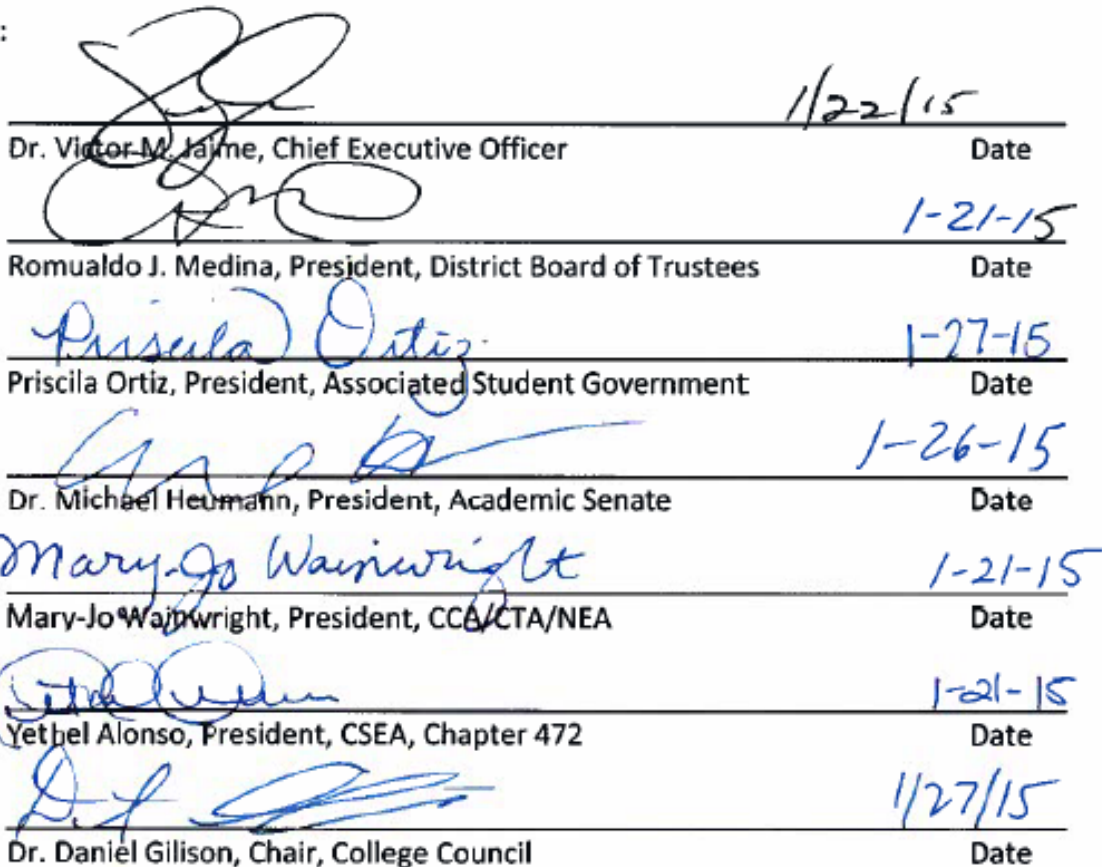 :
1/22/15
Dr. Victor M. Jaime, Chief Executive Officer Date
1-21-15
Romualdo J. Medina, President, District Board of Trustees Date
Priscila Ortiz 1-27-15
Priscila Ortiz, President, Associated Student Government Date
1-26-15
Dr. Michael Heumann, President, Academic Senate Date
Mary-Jo Wainwright 1-21-15
Mary-Jo Wainwright, President, CCA/CTA/NEA Date
1-21-15
Yethel Alonso, President, CSEA, Chapter 472 Date
1/27/15
Dr. Daniel Gilison, Chair, College Council Date